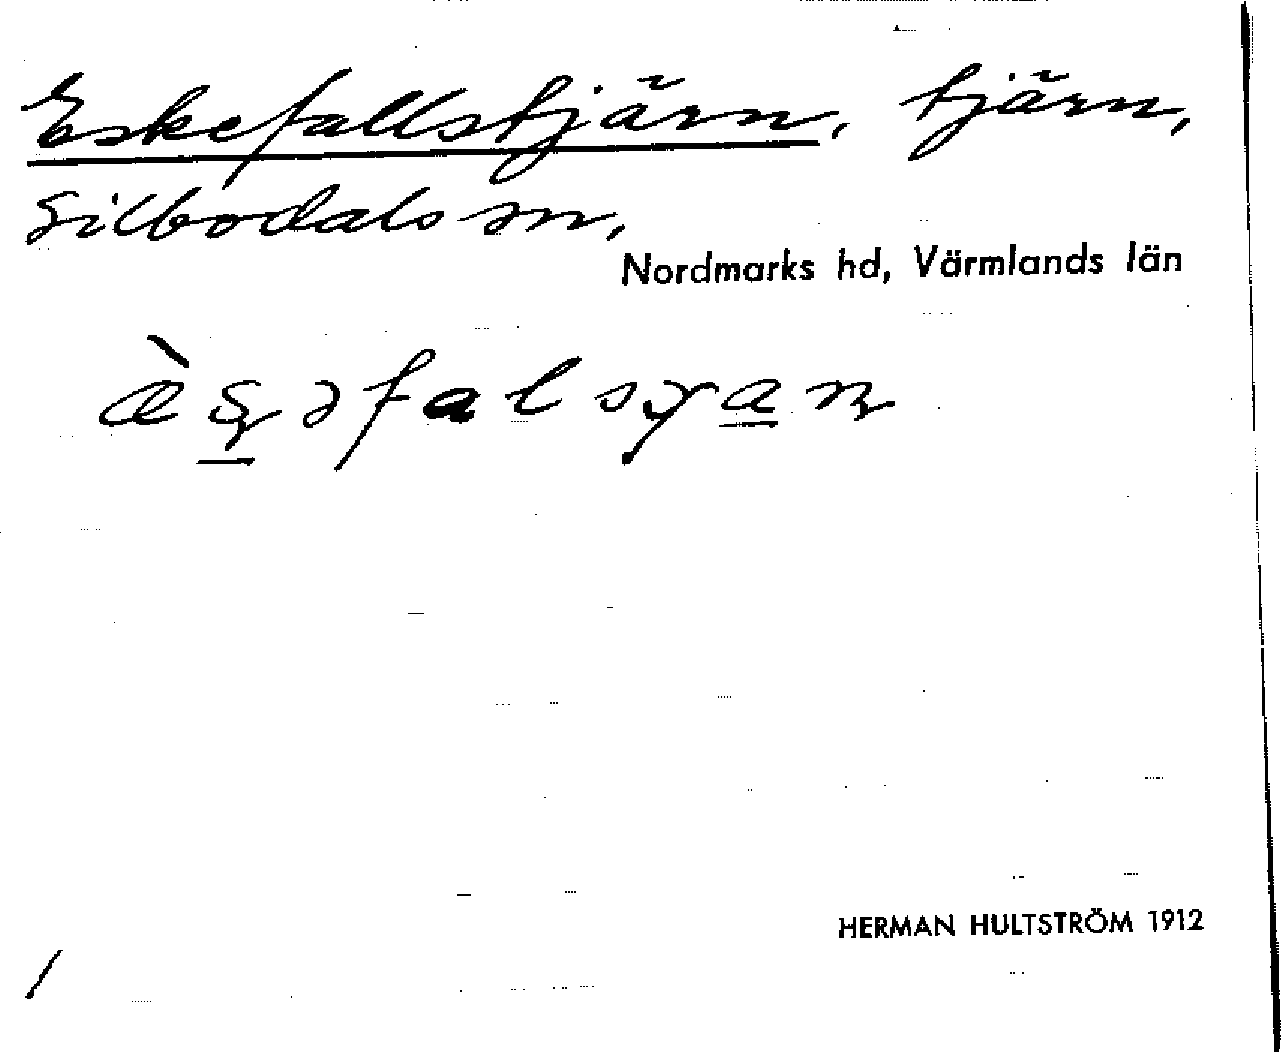 Eskefallstjärn, tjärn,
Silbodals sn,
Nordmarks hd, Värmlands län
HERMAN HULTSTRÖM 1912
/